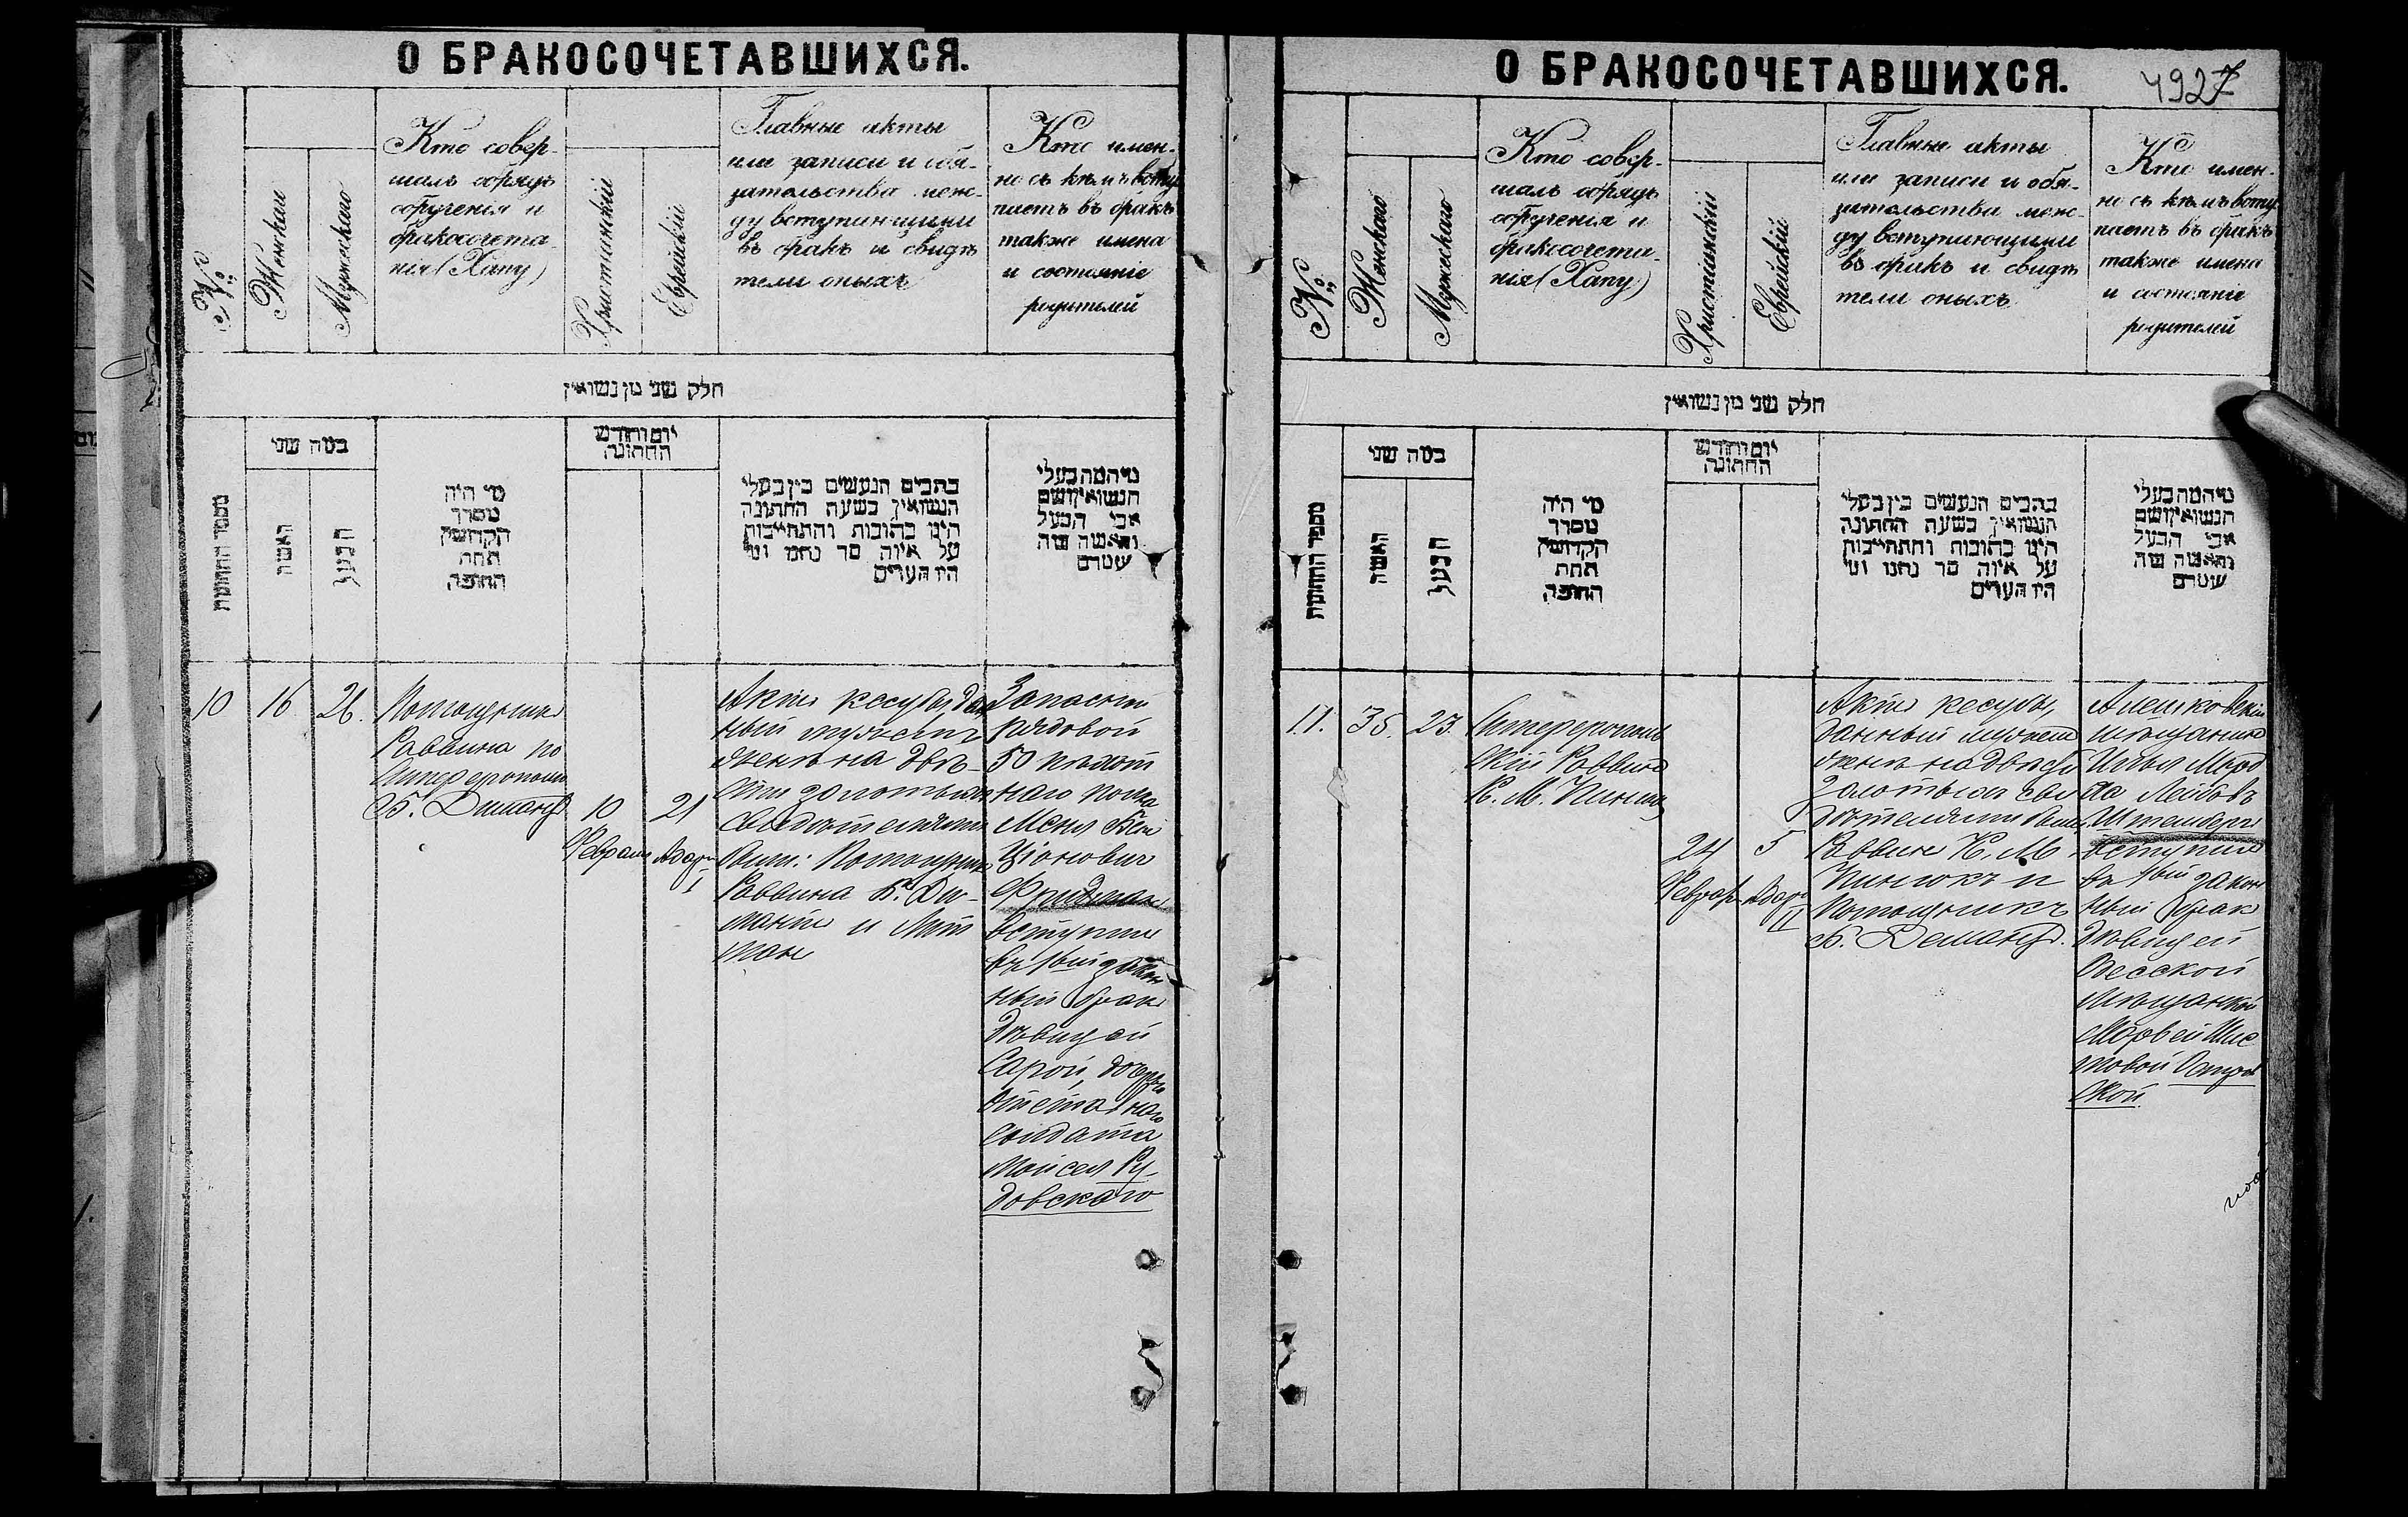 О БРАКОСОЧЕТАВШИХСЯ.
№
Женскаго
Мужескаго
Кто совер-
шалъ обрядъ
обрученія и
бракосочета-
нія (Хапу)
Христіанскій
Еврейскій
Главные акты
или записи и обя-
зательства меж-
ду вступившими
въ бракъ и свидѣ
тели оныхъ
Кто имен-
но съ кѣмъ всту
паетъ въ бракъ
также имена
и состояніе
родителей
חלק שני מן נשואין
מספר החתונות
כמה שני
האשה
הבעל
מי היה
מסדר
הקדושין
תחת
החופה
יום וחודש
החתונה
כתבים הנעשים בין בעלי
הנשואין בשעת החתונה
הינו כתובות והתחייבות
על איזה סך נתנו ומי
היו העדים
מי המה בעלי
הנשואין ושם
אבי הבעל
והאשה
10
16
26.
Помощникъ
Раввина по
Симферополю
Б. Димантъ
10
Февраля
21
Адаръ
I
Актъ кесубы, дан
ный мужемъ
женѣ на двѣ-
сти золотыхъ
Свидѣтелями
были: Помощникъ
Раввина Б. Ди-
мантъ и Лит
ман
Запасный
рядовой
50 пѣхот
наго полка
Меня Бен
ціоновичъ
Фридманъ
вступилъ
въ 1ый закон
ный бракъ
дѣвицей
Сарой, дочерью
отставнаго
солдата
Моисея Ру
довскаго
О БРАКОСОЧЕТАВШИХСЯ.
4927
№
Женскаго
Мужескаго
Кто совер-
шалъ обрядъ
обрученія и
бракосочета-
нія (Хапу)
Христіанскій
Еврейскій
Главные акты
или записи и обя-
зательства меж-
ду вступающими
въ бракъ и свидѣ
тели оныхъ
Кто имен-
но съ кѣмъ всту
паетъ въ бракъ
также имена
и состояніе
родителей
חלק שני מן נשואין
מספר החתונות
כמה שני
האשה
הבעל
מי היה
מסדר
הקדושין
תחת
החופה
יום וחודש
החתונה
כתבים הנעשים בין בעלי
הנשואין בשעת החתונה
הינו כתובות והתחייבות
על איזה סך נתנו ומי
היו העדים
מי המה בעלי
הנשואין ושם
אבי הבעל
והאשה
11.
35.
23.
Симферополь
скій Раввинъ
К. М.
24
Феврал
5
Адаръ
II
Актъ кесубы,
данный мужемъ
женѣ на двѣсти
золотыхъ сви
дѣтелями были
Раввинъ К. М.
и
Помощникъ
Б. Демантъ.
Алешковскій
мѣщанинъ
Илья Морд
ка Лейбовъ
Штембергъ
вступилъ
въ 1ый закон
ный бракъ
дѣвицей
Одесской
мѣщанкой